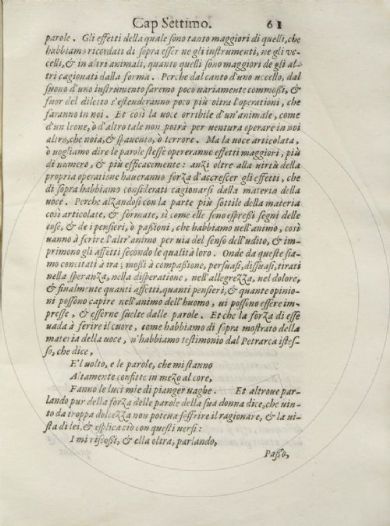 Cap Settimo. 61
parole. Gli effetti della quale sono tanto maggiori di quelli, che
habbiamo ricordati di sopra esser ne gli instrumenti, ne gli vc-
celli, & in altri animali, quanto quelli sono maggiori de gli al-
tri cagionati dalla forma. Perche dal canto d'uno uccello, dal
suono d'uno instrumento saremo poco uariamente commossi, &
fuor del diletto s'estenderanno poco più oltra l'operationi, che
faranno in noi. Et così la uoce orribile d'un'animale, come
d'un leone, ò d'altro tale non potrà per uentura operare in noi
altro, che noia, & spauento, ò terrore. Ma la uoce articolata,
ò uogliamo dire le parole stesse opereranno effetti maggiori, più
di numero, & più efficacemente: anzi oltre alla uirtù della
propria operatione haueranno forza d'accrescer gli effetti, che
di sopra habbiamo considerati cagionarsi dalla materia della
uoce. Perche alzandosi con la parte più sottile della materia
così articolate, & formate, sì come elle sono espressi segni delle
cose, & de i pensieri, ò passioni, che habbiamo nell'animo, così
uanno à ferire l'altr'animo per uia del senso dell'udito, & im-
primono gli affetti secondo le qualità loro. Onde da queste sia-
mo concitati à ira; mossi à compassione, persuasi, dissuasi, tirati
nella speranza, nella disperatione, nell'allegrezza, nel dolore,
& finalmente quanti affetti, quanti pensieri, & quante opinio-
ni possono capire nell'animo dell'huomo, ui possono essere im-
presse, & esserne suelte dalle parole. Et che la forza di esse
uada à ferire il cuore, come habbiamo di sopra mostrato della
materia della uoce, n'habbiamo testimonio dal Petrarca istes-
so, che dice,
E'l uolto, e le parole, che mi stanno
Altamente confitte in mezo al core,
Fanno le luci mie di pianger uaghe. Et altroue par-
lando pur della forza delle parole della sua donna dice, che uin-
to da troppa dolcezza non poteua soffrire il ragionare, & la ui-
sta di lei, & esplica ciò con questi uersi:
I mi riscossi, & ella oltra, parlando,
Passò,